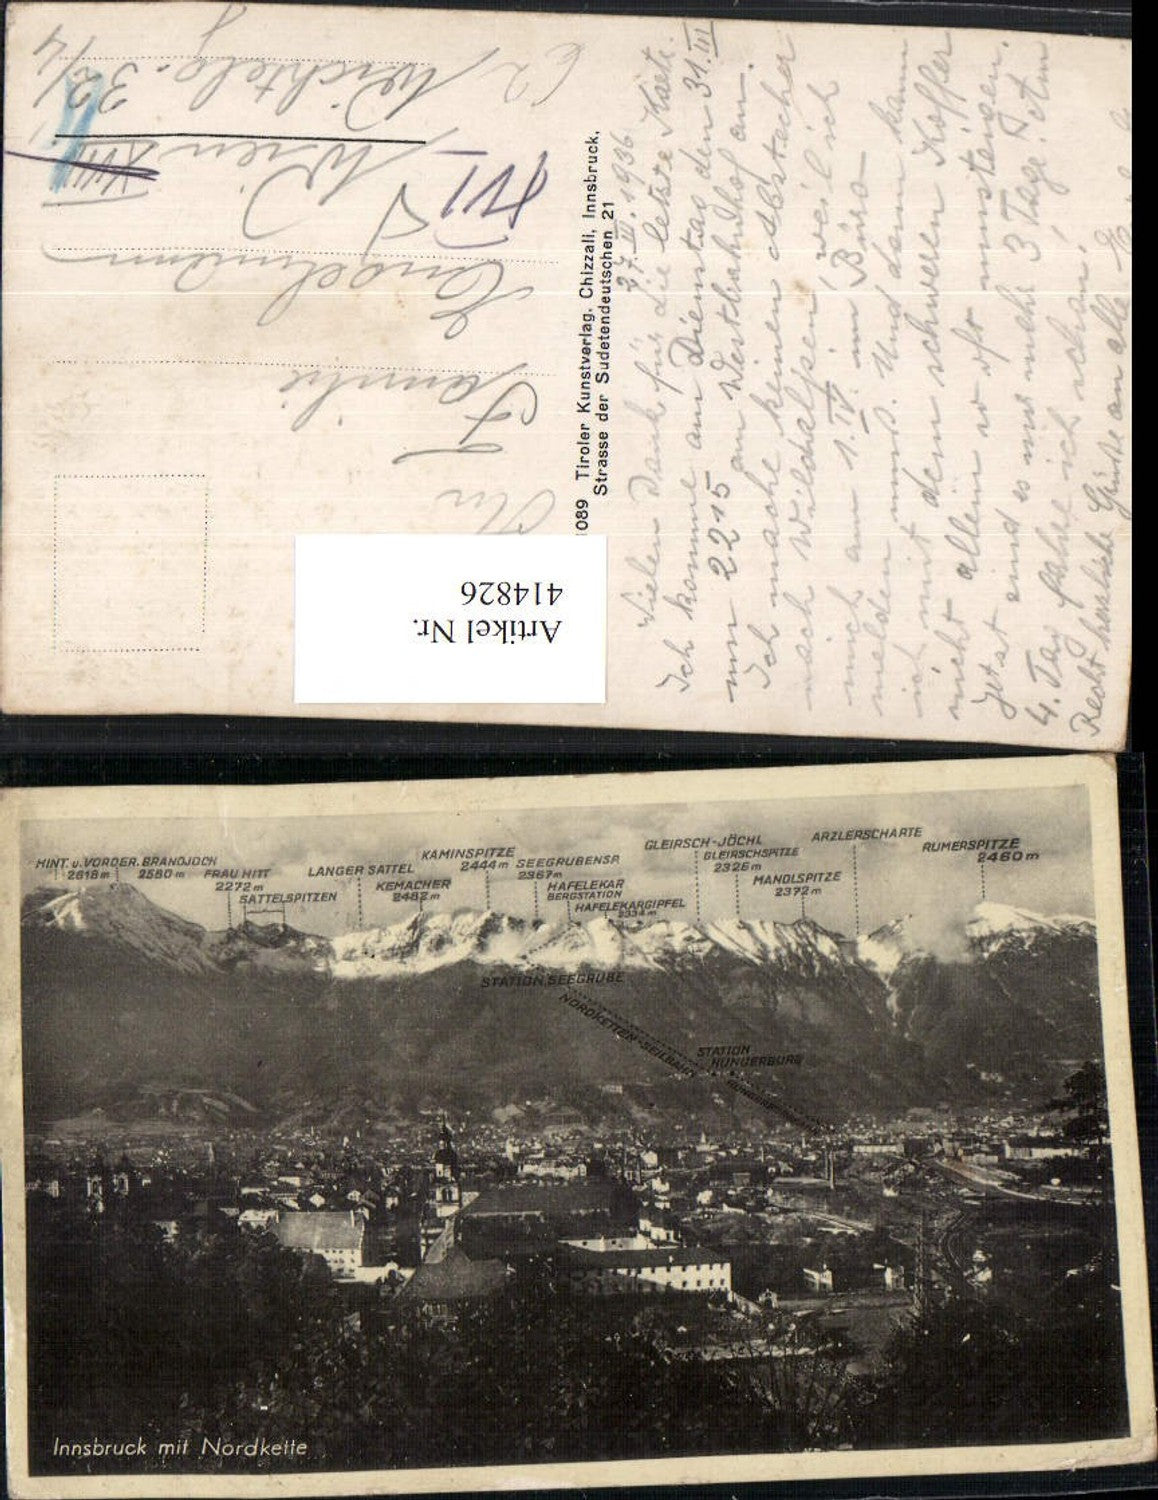 An
Familie
Engelmann
Wien
XVIII
XVI
Wichtelg. 32/4
Artikel Nr.
414826
1089 Tiroler Kunstverlag, Chizzali, Innsbruck,
Strasse der Sudetendeutschen 21
27.III.1936
Vielen Dank für die letzte Karte.
Ich komme am Dienstag den 31.III
um 2215 am Westbahnhof an.
Ich mache keinen Abstecher
nach Wildalpen, weil ich
mich am 1.IV im Büro
melden muss. Und dann kann
ich mit dem schweren Koffer
nicht allein so oft umsteigen.
Jetzt sind es nur mehr 3 Tage. Am
4. Tag fahre ich schon!
Recht herzliche Grüsse an alle
HINT. u. VORDER. BRANDJOCH
2618m 2580m
FRAU HITT
2272m
SATTELSPITZEN
LANGER SATTEL
KEMACHER
2482m
KAMINSPITZE
2444m
SEEGRUBENSP.
2367m
HAFELEKAR
BERGSTATION
HAFELEKARGIPFEL
2334m
GLEIRSCH-JÖCHL
GLEIRSCHSPITZE
2326m
MANDLSPITZE
2372m
ARZLERSCHARTE
RUMERSPITZE
2460m
STATION SEEGRUBE
NORDKETTEN-SEILBAHN
STATION
HUNGERBURG
Innsbruck mit Nordkette